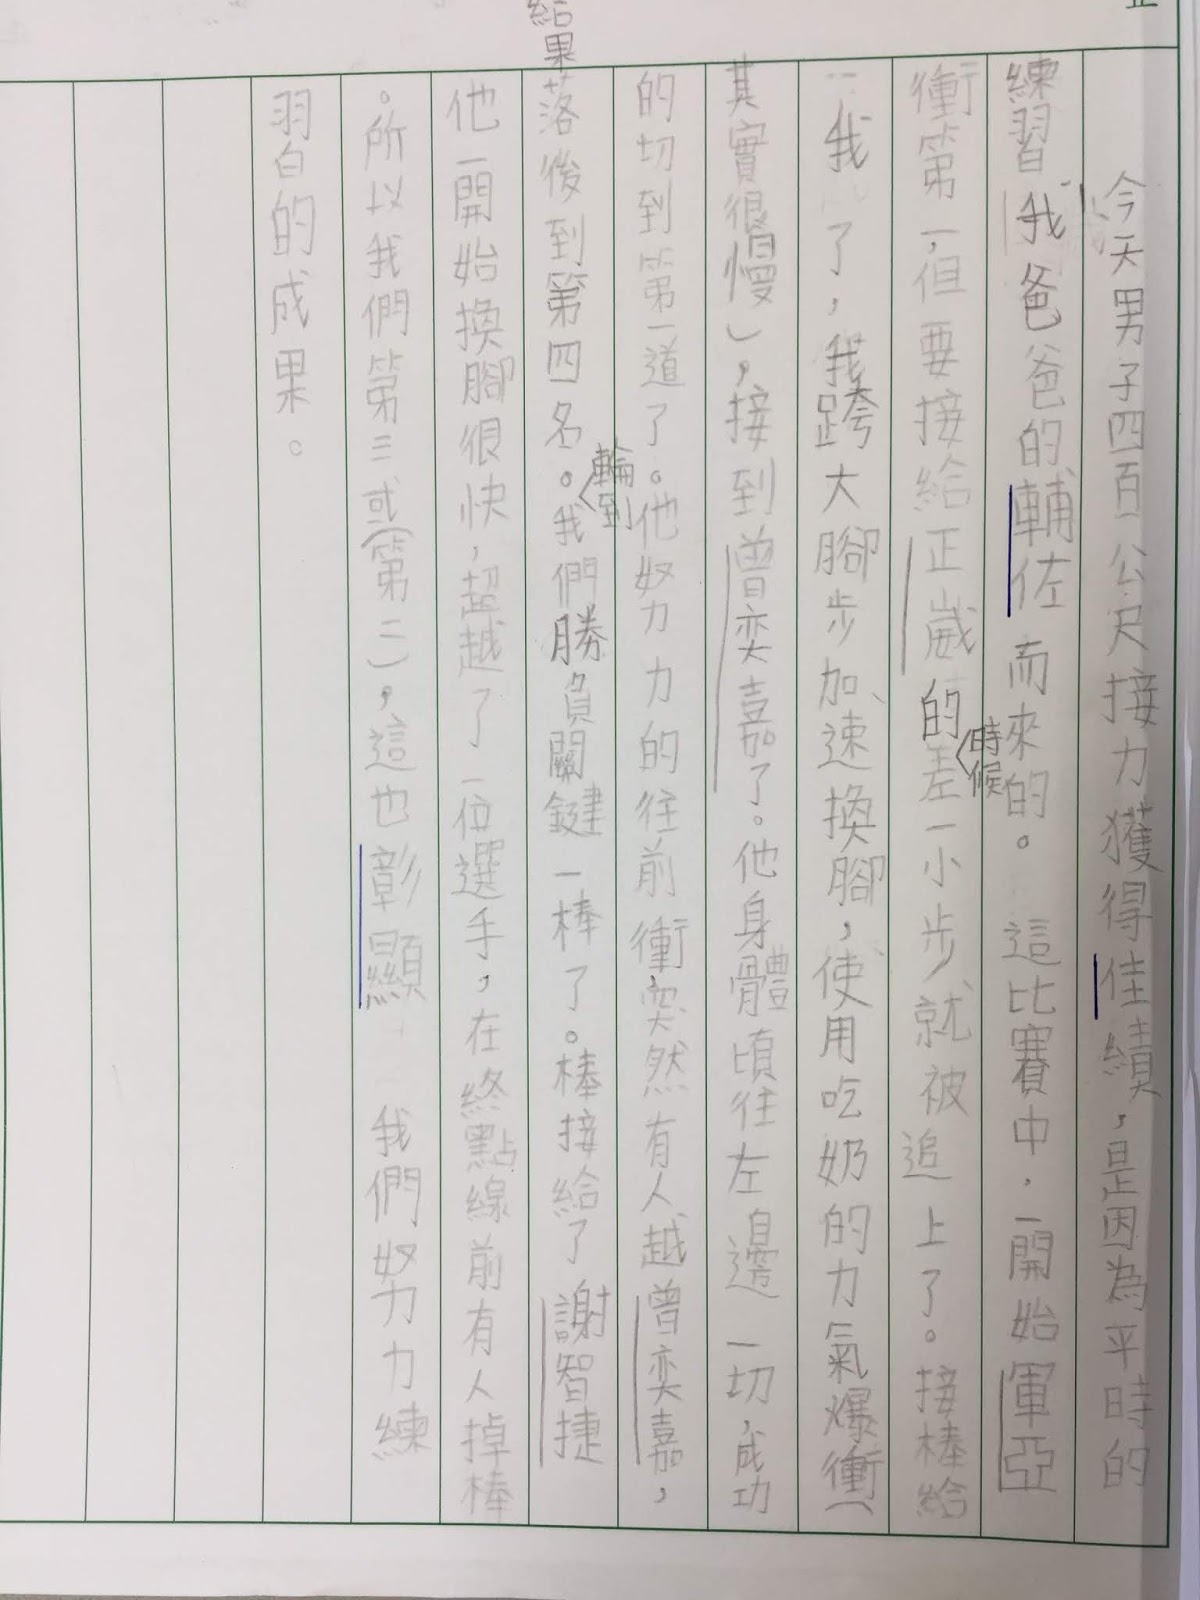 今天男子四百公尺接力獲得佳績，是因為平時的
練習我爸爸的輔佐而來的。這比賽中，一開始軍亞
衝第一，但要接給正崴的時候差一小步就被追上了。接棒給
我了，我跨大腳步加速換腳，使用吃奶的力氣爆衝（
其實很慢），接到曾奕嘉了。他身體傾往左邊一切，成功
的切到第一道了。他努力的往前衝突然有人越曾奕嘉，
結果落後到第四名。輪到我們勝負關鍵一棒了。棒接給了謝智捷
他一開始換腳很快，超越了一位選手，在終點線前有人掉棒
。所以我們第三或（第二），這也彰顯我們努力練
習的成果。